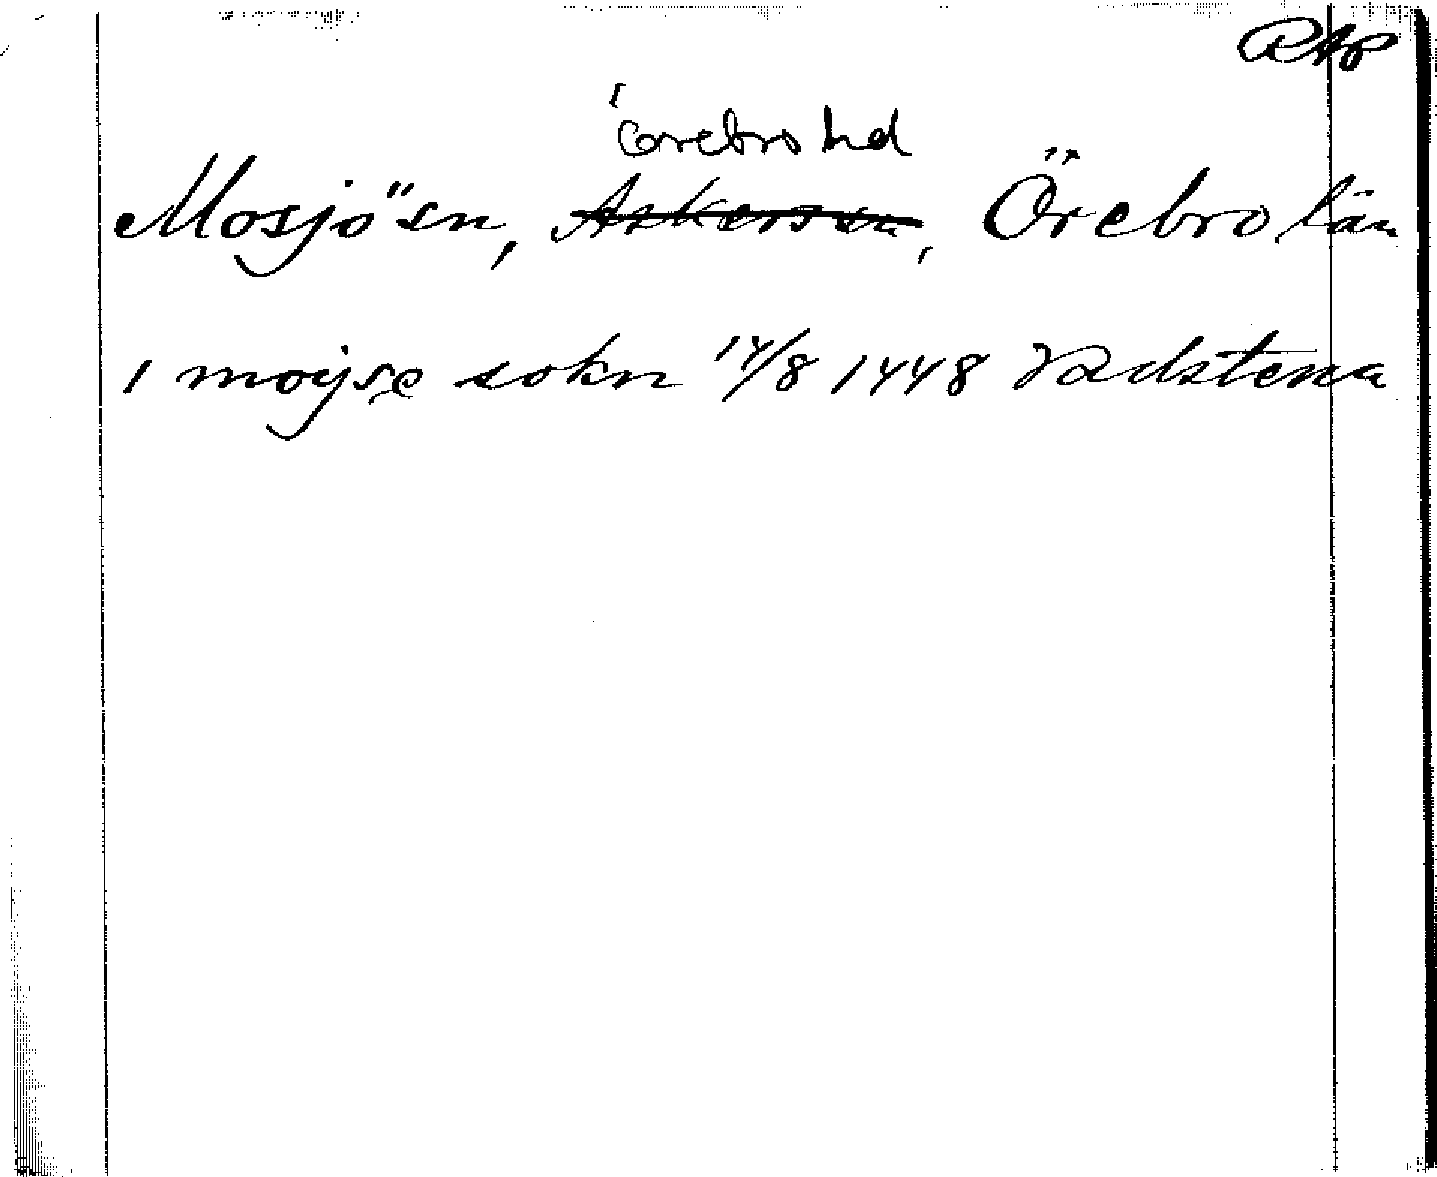 RAP
Örebro hd
Mosjö sn, Askers sn, Örebro län
1 moysæ sokn 14/8 1448 Vadstena